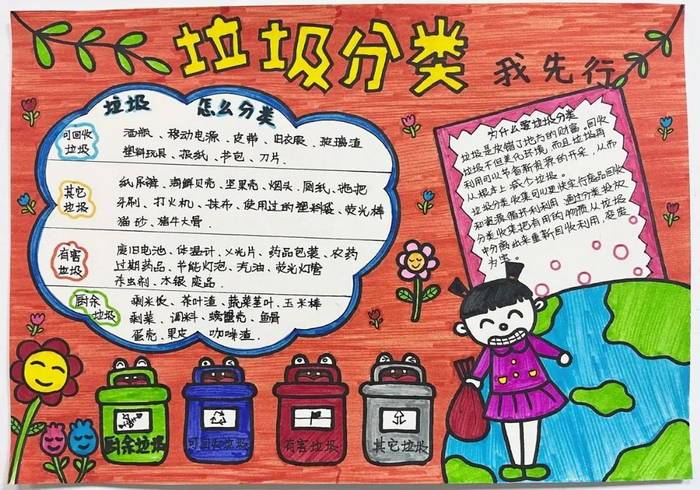 垃圾分类
我先行
垃圾 怎么分类
可回收
垃圾
酒瓶、移动电源、皮带、旧衣服、玻璃渣
塑料玩具、报纸、书包、刀片.
其它
垃圾
纸尿裤、海鲜贝壳、坚果壳、烟头、厕纸、拖把
牙刷、打火机、抹布、使用过的塑料袋、荧光棒
猫砂、猪牛大骨.
有害
垃圾
废旧电池、体温计、X光片、药品包装、农药
过期药品、节能灯泡、汽油、荧光灯管
杀虫剂、水银废品.
厨余
垃圾
剩米饭、茶叶渣、蔬菜茎叶、玉米棒
剩菜、调料、螃蟹壳、鱼骨
蛋壳、果皮、咖啡渣.
为什么要垃圾分类
垃圾是放错了地方的财富.回收
垃圾不但美化环境,而且垃圾再
利用可以节省新资源的开采,从而
从根本上减少垃圾.
垃圾分类收集可以更快实行废品回收
和资源循环利利用.通过分类投放
分类收集把有用的物质从垃圾
中分离出来重新回收利用,变废
为宝.
厨余垃圾
可回收垃圾
有害垃圾
其它垃圾